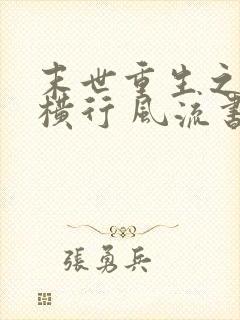 末世重生之
橫行風流書
張勇兵